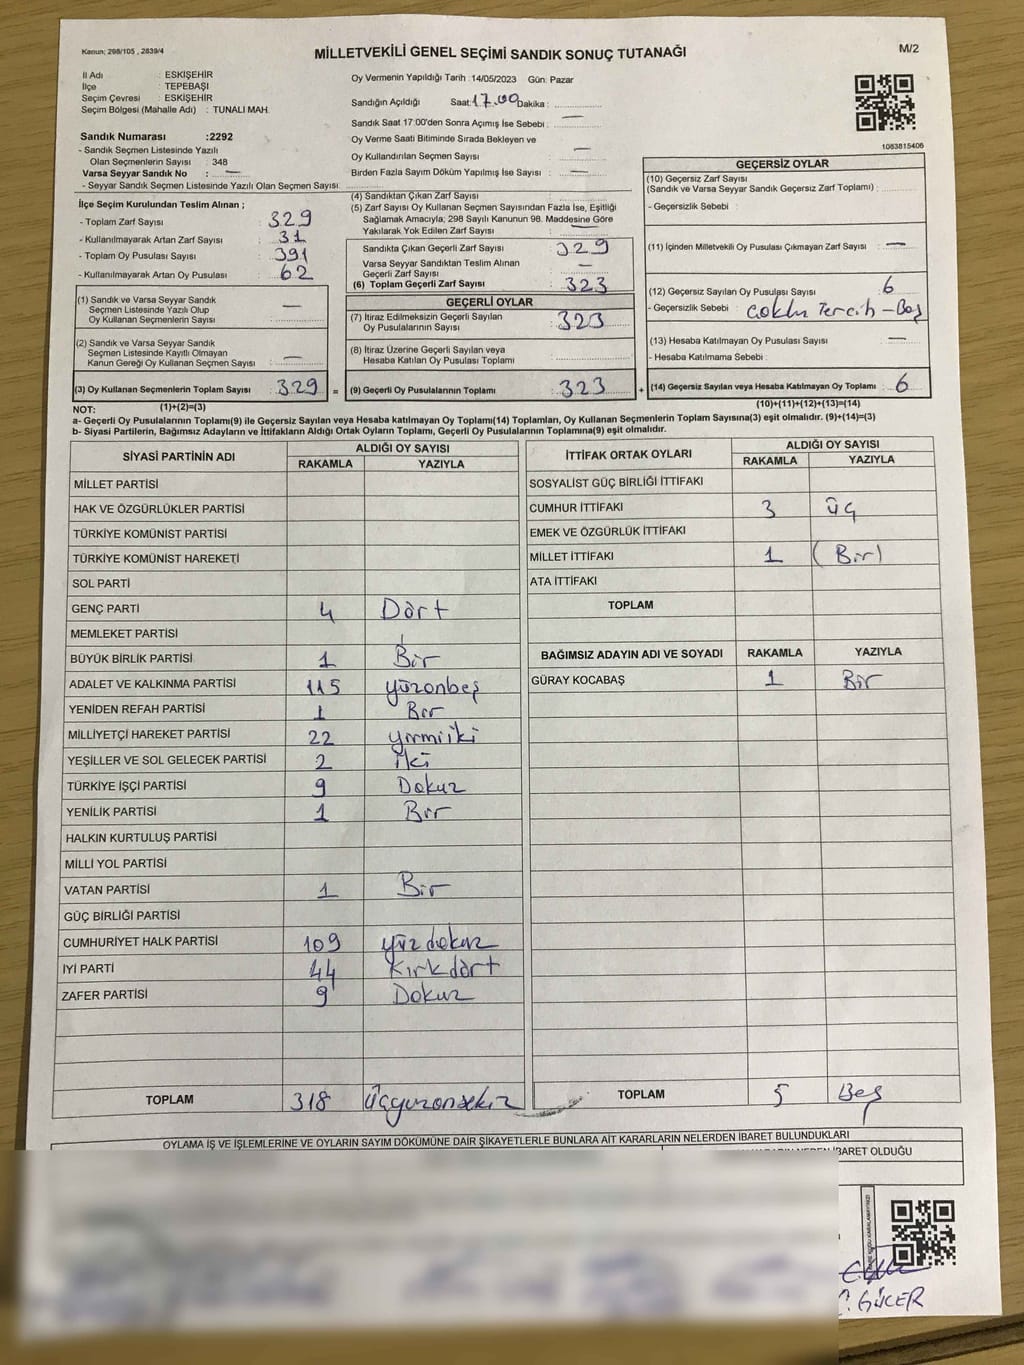 Kanun: 298/105 , 2839/4
MİLLETVEKİLİ GENEL SEÇİMİ SANDIK SONUÇ TUTANAĞI
M/2
İl Adı : ESKİŞEHİR
İlçe : TEPEBAŞI
Seçim Çevresi : ESKİŞEHİR
Seçim Bölgesi (Mahalle Adı) : TUNALI MAH.
Sandık Numarası :2292
- Sandık Seçmen Listesinde Yazılı
Olan Seçmenlerin Sayısı : 348
Varsa Seyyar Sandık No : —
- Seyyar Sandık Seçmen Listesinde Yazılı Olan Seçmen Sayısı
Oy Vermenin Yapıldığı Tarih :14/05/2023 Gün: Pazar
Sandığın Açıldığı Saat:17.00 Dakika :
Sandık Saat 17:00'den Sonra Açımış İse Sebebi : —
Oy Verme Saati Bitiminde Sırada Bekleyen ve
Oy Kullandırılan Seçmen Sayısı —
Birden Fazla Sayım Döküm Yapılmış İse Sayısı : —
1063815406
İlçe Seçim Kurulundan Teslim Alınan ;
- Toplam Zarf Sayısı : 329
- Kullanılmayarak Artan Zarf Sayısı : 31
- Toplam Oy Pusulası Sayısı : 391
- Kullanılmayarak Artan Oy Pusulası : 62
(1) Sandık ve Varsa Seyyar Sandık
Seçmen Listesinde Yazılı Olup
Oy Kullanan Seçmenlerin Sayısı : —
(2) Sandık ve Varsa Seyyar Sandık
Seçmen Listesinde Kayıtlı Olmayan
Kanun Gereği Oy Kullanan Seçmen Sayısı : —
(3) Oy Kullanan Seçmenlerin Toplam Sayısı : 329 =
(1)+(2)=(3)
(4) Sandıktan Çıkan Zarf Sayısı :
(5) Zarf Sayısı Oy Kullanan Seçmen Sayısından Fazla İse, Eşitliği
Sağlamak Amacıyla; 298 Sayılı Kanunun 98. Maddesine Göre
Yakılarak Yok Edilen Zarf Sayısı :
Sandıkta Çıkan Geçerli Zarf Sayısı : 329
Varsa Seyyar Sandıktan Teslim Alınan
Geçerli Zarf Sayısı : —
(6) Toplam Geçerli Zarf Sayısı : 323
GEÇERLİ OYLAR
(7) İtiraz Edilmeksizin Geçerli Sayılan
Oy Pusulalarının Sayısı : 323
(8) İtiraz Üzerine Geçerli Sayılan veya
Hesaba Katılan Oy Pusulası Toplamı :
(9) Geçerli Oy Pusulalarının Toplamı : 323 +
GEÇERSİZ OYLAR
(10) Geçersiz Zarf Sayısı
(Sandık ve Varsa Seyyar Sandık Geçersiz Zarf Toplamı) :
- Geçersizlik Sebebi :
(11) İçinden Milletvekili Oy Pusulası Çıkmayan Zarf Sayısı : —
(12) Geçersiz Sayılan Oy Pusulası Sayısı : 6
- Geçersizlik Sebebi : Çoklu Tercih - Boş
(13) Hesaba Katılmayan Oy Pusulası Sayısı : —
- Hesaba Katılmama Sebebi :
(14) Geçersiz Sayılan veya Hesaba Katılmayan Oy Toplamı : 6
(10)+(11)+(12)+(13)=(14)
NOT:
a- Geçerli Oy Pusulalarının Toplamı(9) ile Geçersiz Sayılan veya Hesaba katılmayan Oy Toplamı(14) Toplamları, Oy Kullanan Seçmenlerin Toplam Sayısına(3) eşit olmalıdır. (9)+(14)=(3)
b- Siyasi Partilerin, Bağımsız Adayların ve İttifakların Aldığı Ortak Oyların Toplamı, Geçerli Oy Pusulalarının Toplamına(9) eşit olmalıdır.
SİYASİ PARTİNİN ADI ALDIĞI OY SAYISI
RAKAMLA YAZIYLA
MİLLET PARTİSİ
HAK VE ÖZGÜRLÜKLER PARTİSİ
TÜRKİYE KOMÜNİST PARTİSİ
TÜRKİYE KOMÜNİST HAREKETİ
SOL PARTİ
GENÇ PARTİ 4 Dört
MEMLEKET PARTİSİ
BÜYÜK BİRLİK PARTİSİ 1 Bir
ADALET VE KALKINMA PARTİSİ 115 yüzonbeş
YENİDEN REFAH PARTİSİ 1 Bir
MİLLİYETÇİ HAREKET PARTİSİ 22 yirmiiki
YEŞİLLER VE SOL GELECEK PARTİSİ 2 iki
TÜRKİYE İŞÇİ PARTİSİ 9 Dokuz
YENİLİK PARTİSİ 1 Bir
HALKIN KURTULUŞ PARTİSİ
MİLLİ YOL PARTİSİ
VATAN PARTİSİ 1 Bir
GÜÇ BİRLİĞİ PARTİSİ
CUMHURİYET HALK PARTİSİ 109 yüzdokuz
İYİ PARTİ 44 Kırkdört
ZAFER PARTİSİ 9 Dokuz
TOPLAM 318 Üçyüzonsekiz
İTTİFAK ORTAK OYLARI ALDIĞI OY SAYISI
RAKAMLA YAZIYLA
SOSYALİST GÜÇ BİRLİĞİ İTTİFAKI
CUMHUR İTTİFAKI 3 üç
EMEK VE ÖZGÜRLÜK İTTİFAKI
MİLLET İTTİFAKI 1 (Bir)
ATA İTTİFAKI
TOPLAM
BAĞIMSIZ ADAYIN ADI VE SOYADI RAKAMLA YAZIYLA
GÜRAY KOCABAŞ 1 Bir
TOPLAM 5 Beş
OYLAMA İŞ VE İŞLEMLERİNE VE OYLARIN SAYIM DÖKÜMÜNE DAİR ŞİKAYETLERLE BUNLARA AİT KARARLARIN NELERDEN İBARET BULUNDUKLARI
İBARET OLDUĞU
GÜCER